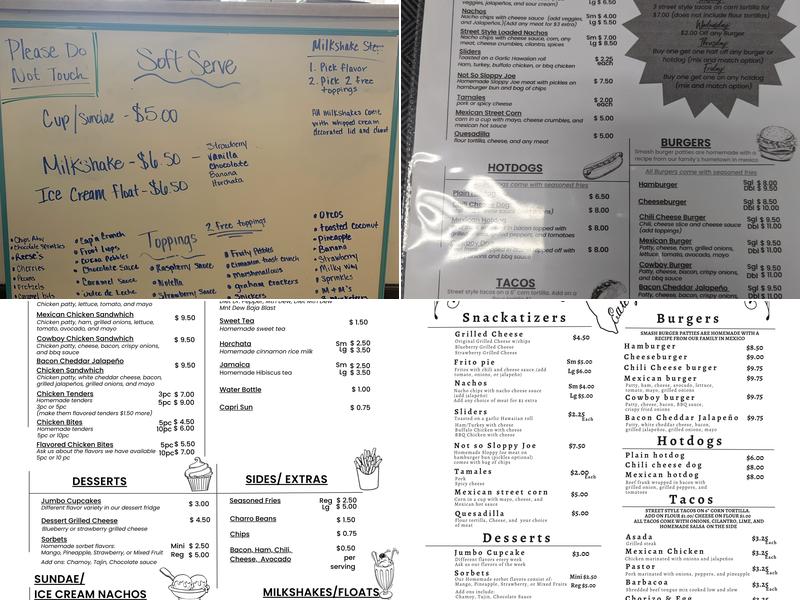 Please Do
Not Touch
Soft Serve
Cup/Sundae - $5.00
Milkshake - $6.50
Strawberry
Vanilla
Chocolate
Banana
Horchata
Ice Cream Float - $6.50
Milkshake
1. Pick flavor
2. Pick 2 free
toppings
All milkshakes come
with whipped cream
decorated lid and
Toppings
2 Free toppings
Chips Ahoy
Chocolate Sprinkles
Reese's
Cherries
Pecans
Pretzels
Cap'n Crunch
Froot Loops
Cocoa Pebbles
Chocolate Sauce
Caramel Sauce
Dulce de Leche
Raspberry Sauce
Nutella
Strawberry Sauce
Fruity Pebbles
Cinnamon toast crunch
Marshmallows
Graham Crackers
Snickers
Oreos
Toasted Coconut
Pineapple
Banana
Strawberry
Milky Way
Sprinkles
M+M's
veggies, jalapeños, and sour cream)
Lg $ 6.50
Nachos
Nacho chips with cheese sauce (add veggies,
and Jalapeños)(Add any meat for $3 extra)
Sm $ 4.00
Lg $ 5.50
Street Style Loaded Nachos
Nacho chips with cheese sauce, corn, any
meat, cheese crumbles, cilantro, spices
Sm $ 7.00
Lg $ 8.50
Sliders
Toasted on a Garlic Hawaiian roll
Ham, turkey, buffalo chicken, or bbq chicken
$ 2.25
each
Not So Sloppy Joe
Homemade Sloppy Joe meat with pickles on
hamburger bun and bag of chips
$ 7.50
Tamales
pork or spicy cheese
$ 2.00
each
Mexican Street Corn
corn in a cup with mayo, cheese crumbles, and
mexican hot sauce
$ 5.00
Quesadilla
flour tortilla, cheese, and any meat
$ 5.00
3 street style tacos on corn tortilla for
$7.00 (does not include flour tortillas)
Wednesday
$2.00 Off any Burger
Thursday
Buy one get one half off any burger or
hotdog (mix and match option)
Friday
Buy one get one on any hotdog
(mix and match option)
HOTDOGS
come with seasoned fries
Plain
$ 6.50
Chili Cheese Dog
$ 8.00
Mexican Hotdog
$ 8.00
TACOS
BURGERS
Smash burger patties are homemade with a
recipe from our family's hometown in mexico
All Burgers come with seasoned fries
Hamburger
Sgl $ 8.00
Dbl $ 9.50
Cheeseburger
Sgl $ 8.50
Dbl $ 10.00
Chili Cheese Burger
Chili, cheese slice and cheese sauce
(add toppings)
Sgl $ 9.50
Dbl $ 11.00
Mexican Burger
Patty, cheese, ham, grilled onions,
lettuce, tomato, avocado, and mayo
Sgl $ 9.50
Dbl $ 11.00
Cowboy Burger
Patty, cheese, bacon, crispy onions,
and bbq sauce
Sgl $ 9.50
Dbl $ 11.00
Bacon Cheddar Jalapeño
Sgl $ 9.50
Dbl $ 11.00
Chicken patty, lettuce, tomato, and mayo
Mexican Chicken Sandwhich
Chicken patty, ham, grilled onions, lettuce,
tomato, avocado, and mayo
$ 9.50
Cowboy Chicken Sandwhich
Chicken patty, cheese, bacon, crispy onions,
and bbq sauce
$ 9.50
Bacon Cheddar Jalapeño
Chicken Sandwhich
Chicken patty, white cheddar cheese, bacon,
grilled jalapeños, grilled onions, and mayo
$ 9.50
Chicken Tenders
Homemade tenders
3pc or 5pc
(make them flavored tenders $1.50 more)
3pc $ 7.00
5pc $ 9.00
Chicken Bites
Homemade bites
5pc or 10pc
5pc $ 4.50
10pc $ 6.00
Flavored Chicken Bites
Ask us about the flavors we have available
5pc or 10 pc
5pc $ 5.50
10pc $ 7.00
Mnt Dew Baja Blast
Sweet Tea
Homemade sweet tea
$ 1.50
Horchata
Homemade cinnamon rice milk
Sm $ 2.50
Lg $ 3.50
Jamaica
Homemade Hibiscus tea
Sm $ 2.50
Lg $ 3.50
Water Bottle
$ 1.00
Capri Sun
$ 0.75
DESSERTS
Jumbo Cupcakes
Different flavor variety in our dessert fridge
$ 3.00
Dessert Grilled Cheese
Blueberry or strawberry grilled cheese
$ 4.50
Sorbets
Homemade sorbet flavors:
Mango, Pineapple, Strawberry, or Mixed Fruit
Mini $ 2.50
Reg $ 5.00
Add ons: Chamoy, Tajin, Chocolate sauce
SUNDAE/
ICE CREAM NACHOS
SIDES/ EXTRAS
Seasoned Fries
Reg $ 2.50
Lg $ 5.00
Charro Beans
$ 1.50
Chips
$ 0.75
Bacon, Ham, Chili,
Cheese, Avocado
$0.50
per
serving
MILKSHAKES/FLOATS
Snackatizers
Grilled Cheese
Original Grilled Cheese w/chips
Blueberry Grilled Cheese
Strawberry Grilled Cheese
$4.50
Frito pie
Fritos with chili and cheese sauce (add
tomato, onions, or jalapeño)
Sm $5.00
Lg $6.00
Nachos
Nacho chips with nacho cheese sauce
(add jalapeño)
Add any choice of meat for $1 extra
Sm $4.00
Lg $5.00
Sliders
Toasted on a garlic Hawaiian roll
Ham/Turkey with cheese
Buffalo Chicken with cheese
BBQ Chicken with cheese
$2.25
Each
Not so Sloppy Joe
Homemade Sloppy Joe meat on
hamburger bun (pickles optional)
comes with bag of chips
$7.50
Tamales
Pork
Spicy cheese
$2.00
Each
Mexican street corn
Corn in a cup with mayo, cheese, and
Mexican hot sauce
$5.00
Quesadilla
Flour tortilla, Cheese, and your choice
of meat
$5.00
Desserts
Jumbo Cupcake
Different flavors every week
Ask us our flavors of the week
$3.00
Sorbets
Our Homemade sorbet flavors consist of:
Mango, Pineapple, Strawberry, or Mixed Fruits
Add ons include:
Chamoy, Tajin, Chocolate Sauce
Mini $2.50
Reg $5.00
Burgers
SMASH BURGER PATTIES ARE HOMEMADE WITH A
RECIPE FROM OUR FAMILY IN MEXICO
Hamburger
$8.50
Cheeseburger
$9.00
Chili Cheese burger
$9.75
Mexican burger
Patty, ham, cheese, avocado, lettuce,
tomato, mayo, grilled onions
$9.75
Cowboy burger
Patty, cheese, bacon, BBQ sauce,
crispy fried onions
$9.75
Bacon Cheddar Jalapeño
Patty, white cheddar cheese, bacon,
grilled jalapeño, grilled onions, mayo
$9.75
Hotdogs
Plain hotdog
$6.00
Chili cheese dog
$8.00
Mexican hotdog
Beef frank wrapped in bacon with
grilled onion, grilled peppers, and
tomatoes
$8.00
Tacos
STREET STYLE TACOS ON 6" CORN TORTILLA.
ADD ON FLOUR $1.00/ CHEESE ON FLOUR $1.00
ALL TACOS COME WITH ONIONS, CILANTRO, LIME, AND
HOMEMADE SALSA ON THE SIDE
Asada
Grilled steak
$3.25
Each
Mexican Chicken
Chicken marinated in onions
$3.25
Each
Pastor
Pork marinated with onions, peppers, and pineapple
$3.25
Each
Barbacoa
Shredded beef tongue mix cooked low and slow
$3.25
Each
Chorizo & Egg